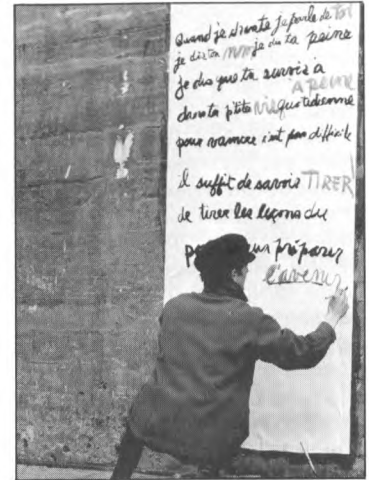 Quand je chante je parle de toi
je dis ton nom je dis ta peine
je dis que ta survis à
A PEINE
dans ta p'tite vie quotidienne
pour vaincre c'est pas difficile
il suffit de savoir TIRER
de tirer les leçons du
préparer
l'avenir